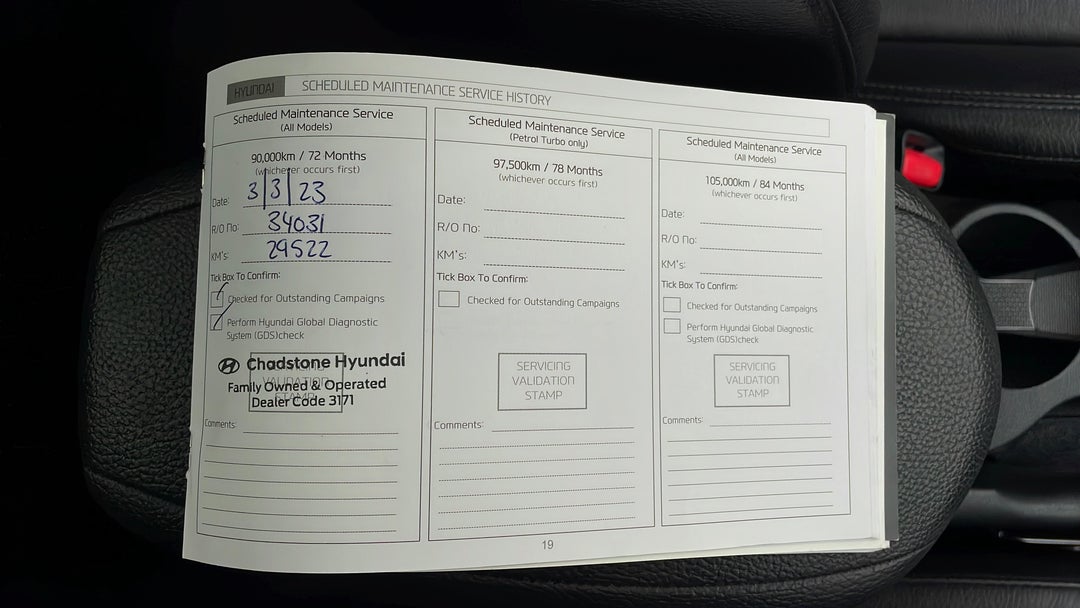 HYUNDAI SCHEDULED MAINTENANCE SERVICE HISTORY
Scheduled Maintenance Service
(All Models)
90,000km / 72 Months
(whichever occurs first)
Date: 3/3/23
R/O No: 34031
KM's: 29522
Tick Box To Confirm:
Checked for Outstanding Campaigns
Perform Hyundai Global Diagnostic
System (GDS)check
SERVICING
VALIDATION
STAMP
Chadstone Hyundai
Family Owned & Operated
Dealer Code 3171
Comments:
Scheduled Maintenance Service
(Petrol Turbo only)
97,500km / 78 Months
(whichever occurs first)
Date:
R/O No:
KM's:
Tick Box To Confirm:
Checked for Outstanding Campaigns
SERVICING
VALIDATION
STAMP
Comments:
Scheduled Maintenance Service
(All Models)
105,000km / 84 Months
(whichever occurs first)
Date:
R/O No:
KM's:
Tick Box To Confirm:
Checked for Outstanding Campaigns
Perform Hyundai Global Diagnostic
System (GDS)check
SERVICING
VALIDATION
STAMP
Comments:
19